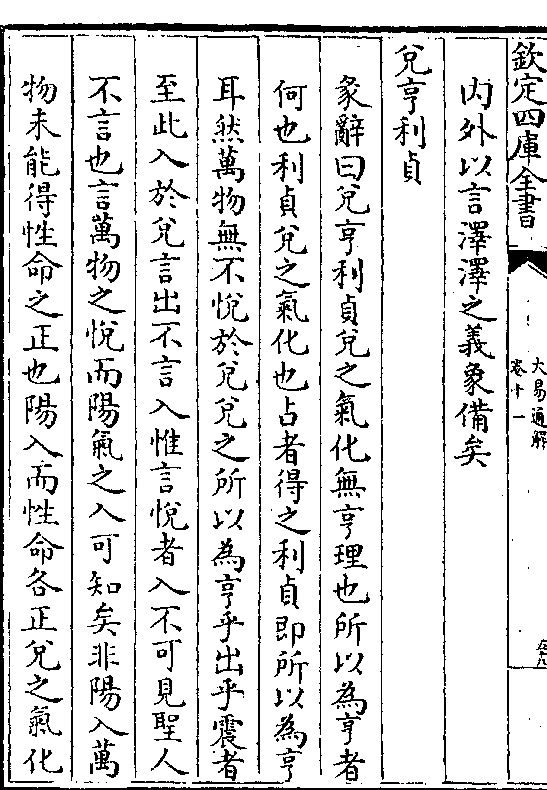 欽定四庫全書
大易通解
卷十一
內外以言澤澤之義象備矣
兌亨利貞
彖辭曰兌亨利貞兌之氣化無亨理也所以為亨者
何也利貞兌之氣化也占者得之利貞即所以為亨
耳然萬物無不悅於兌兌之所以為亨乎出乎震者
至此入於兌言出不言入惟言悅者入不可見聖人
不言也言萬物之悅而陽氣之入可知矣非陽入萬
物未能得性命之正也陽入而性命各正兌之氣化